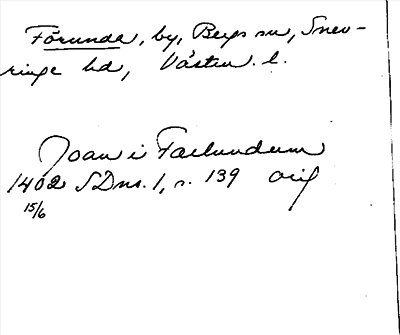 Förunde, by, Bergs sn, Snev-
ringe hd, Västm. l.
Joan i Faelundum
1402 SDns. 1, s. 139 orig
15/6